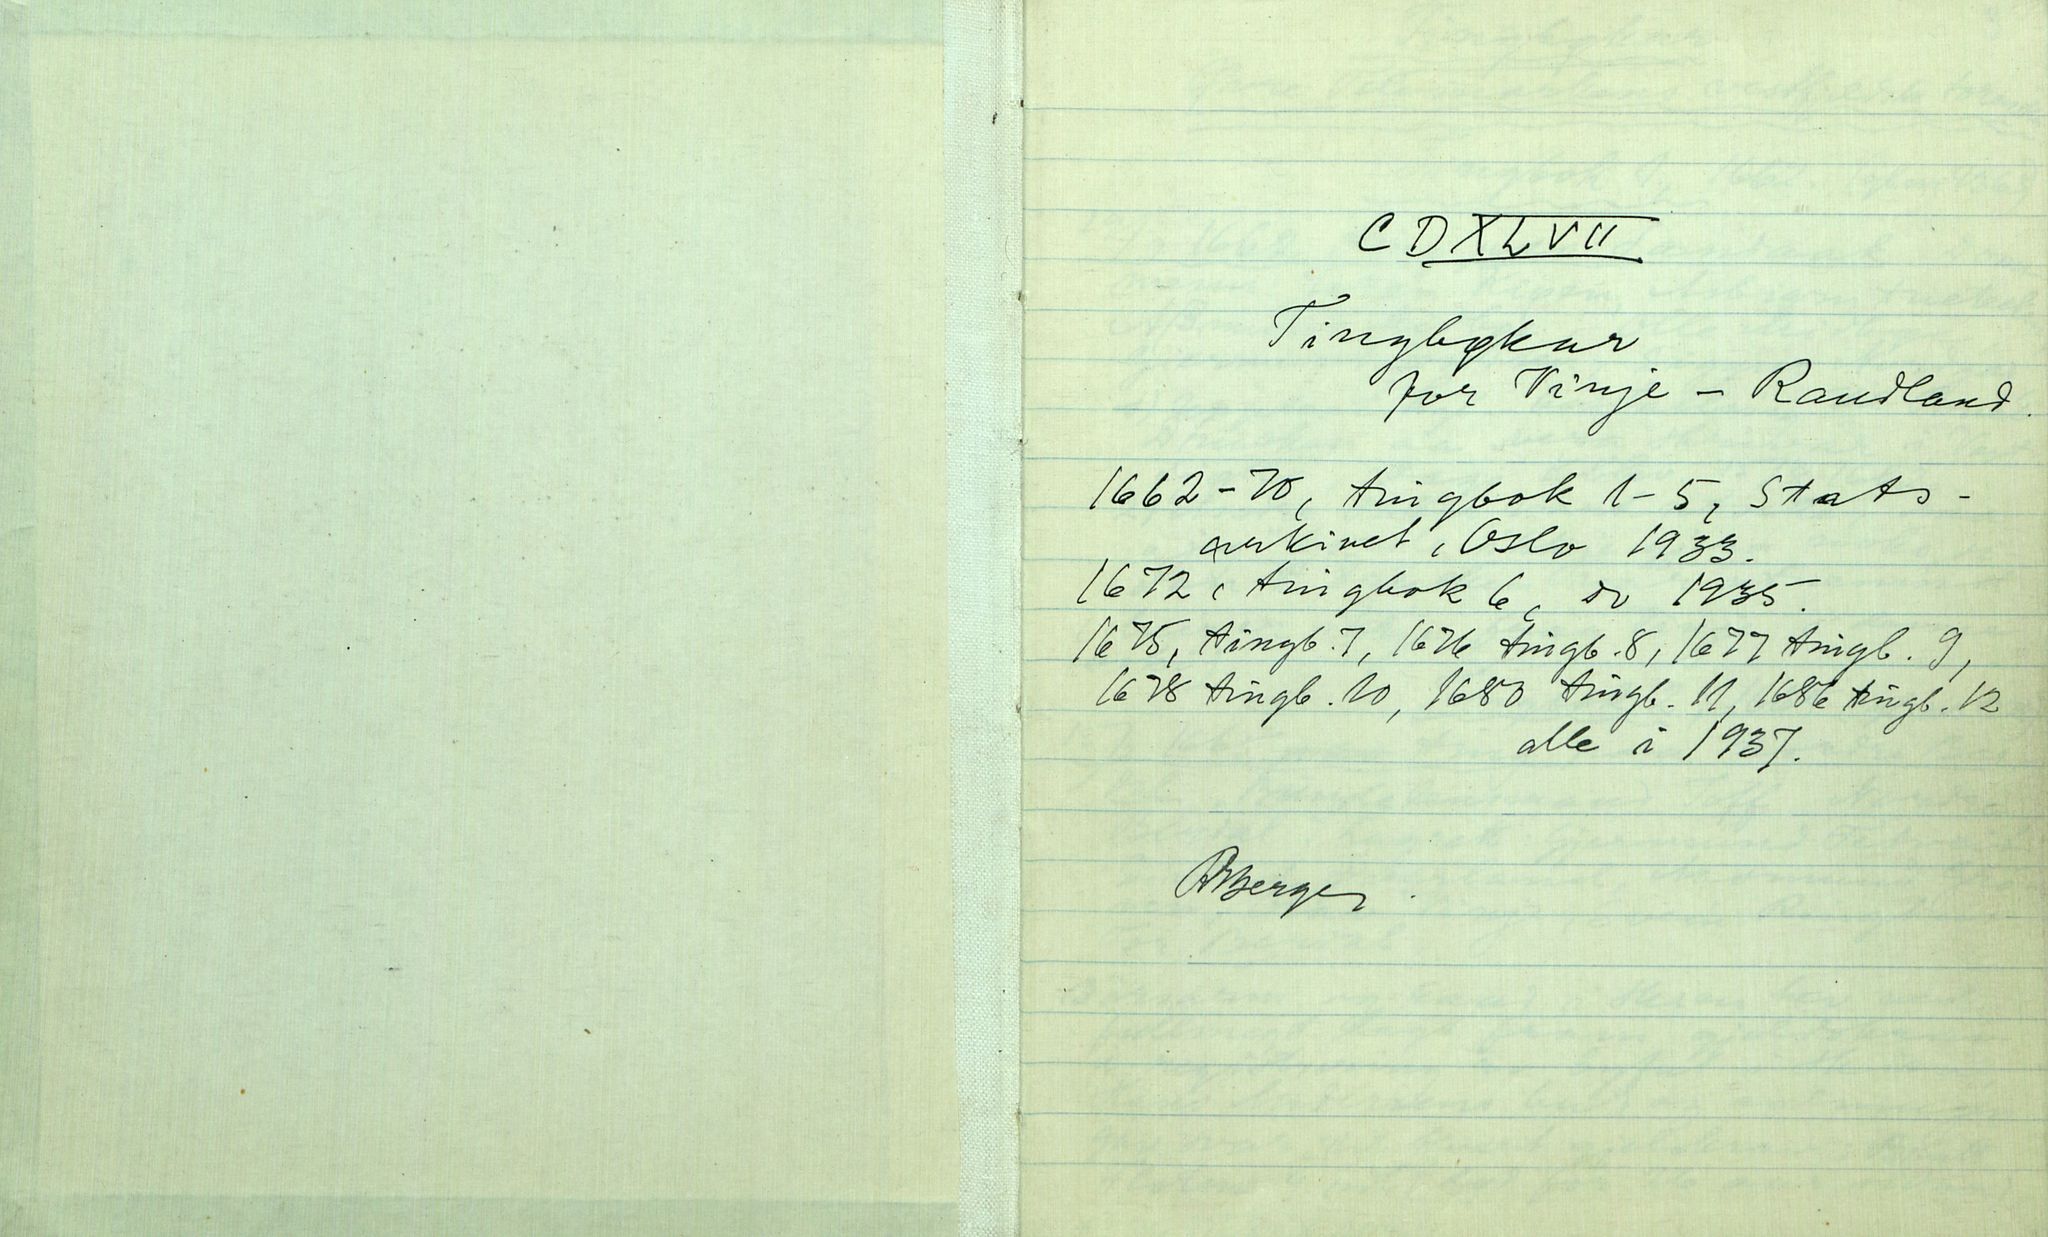 CDXLVII
Tingbøkar
for Vinje - Raudland.
1662-70, tingbok 1-5, Stats-
arkivet, Oslo 1933.
1672, tingbok 6, do 1935.
1675, tingb. 7, 1676 tingb. 8, 1677 tingb. 9,
1678 tingb. 10, 1680 tingb. 11, 1686 tingb. 12
alle i 1937.
RBerge.